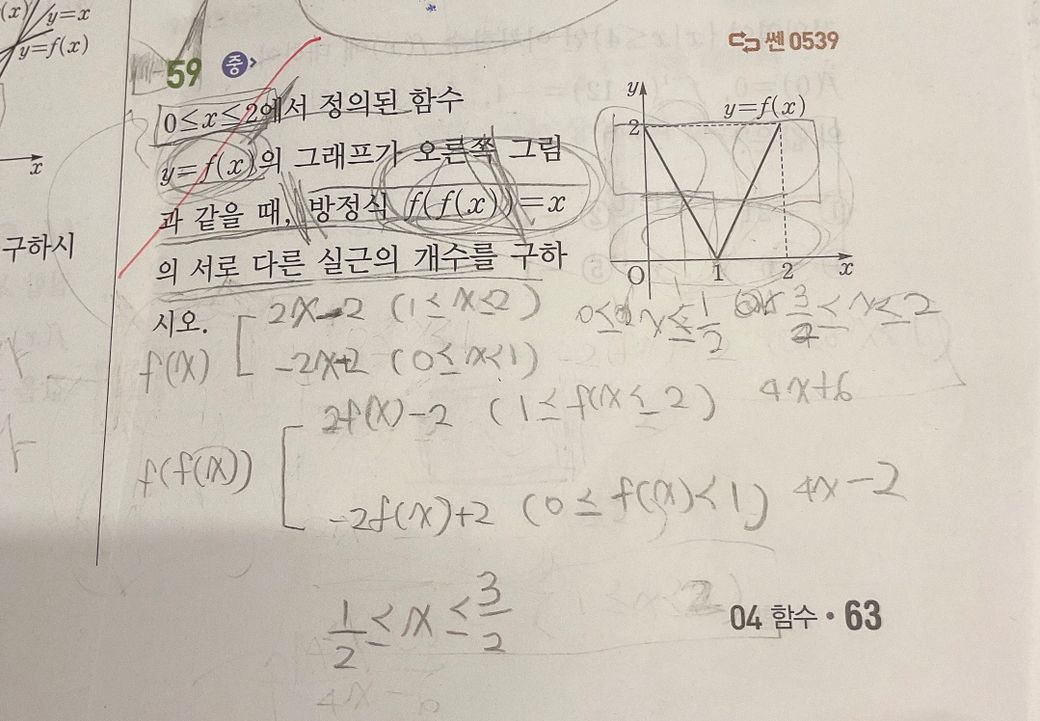 y=x
y=f(x)
x
구하시
쎈 0539
59 중
0≤x≤2에서 정의된 함수
y=f(x)의 그래프가 오른쪽 그림
과 같을 때, 방정식 f(f(x))=x
의 서로 다른 실근의 개수를 구하
시오.
y
y=f(x)
2
O 1 2 x
f(x) 2x-2 (1≤x≤2)
-2x+2 (0≤x<1)
x≤1/2 3/2≤x≤2
f(f(x)) 2f(x)-2 (1≤f(x≤2) 4x+6
-2f(x)+2 (0≤f(x)<1) 4x-2
1/2≤x≤3/2
04 함수 • 63